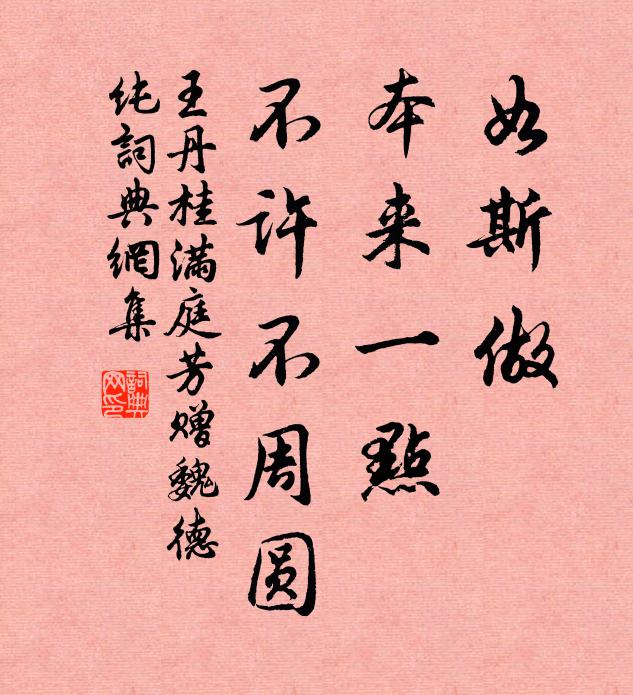 如斯做
本来一點
不许不周圆
王丹桂满庭芳赠魏德
纯詞典網集
詞典
网印